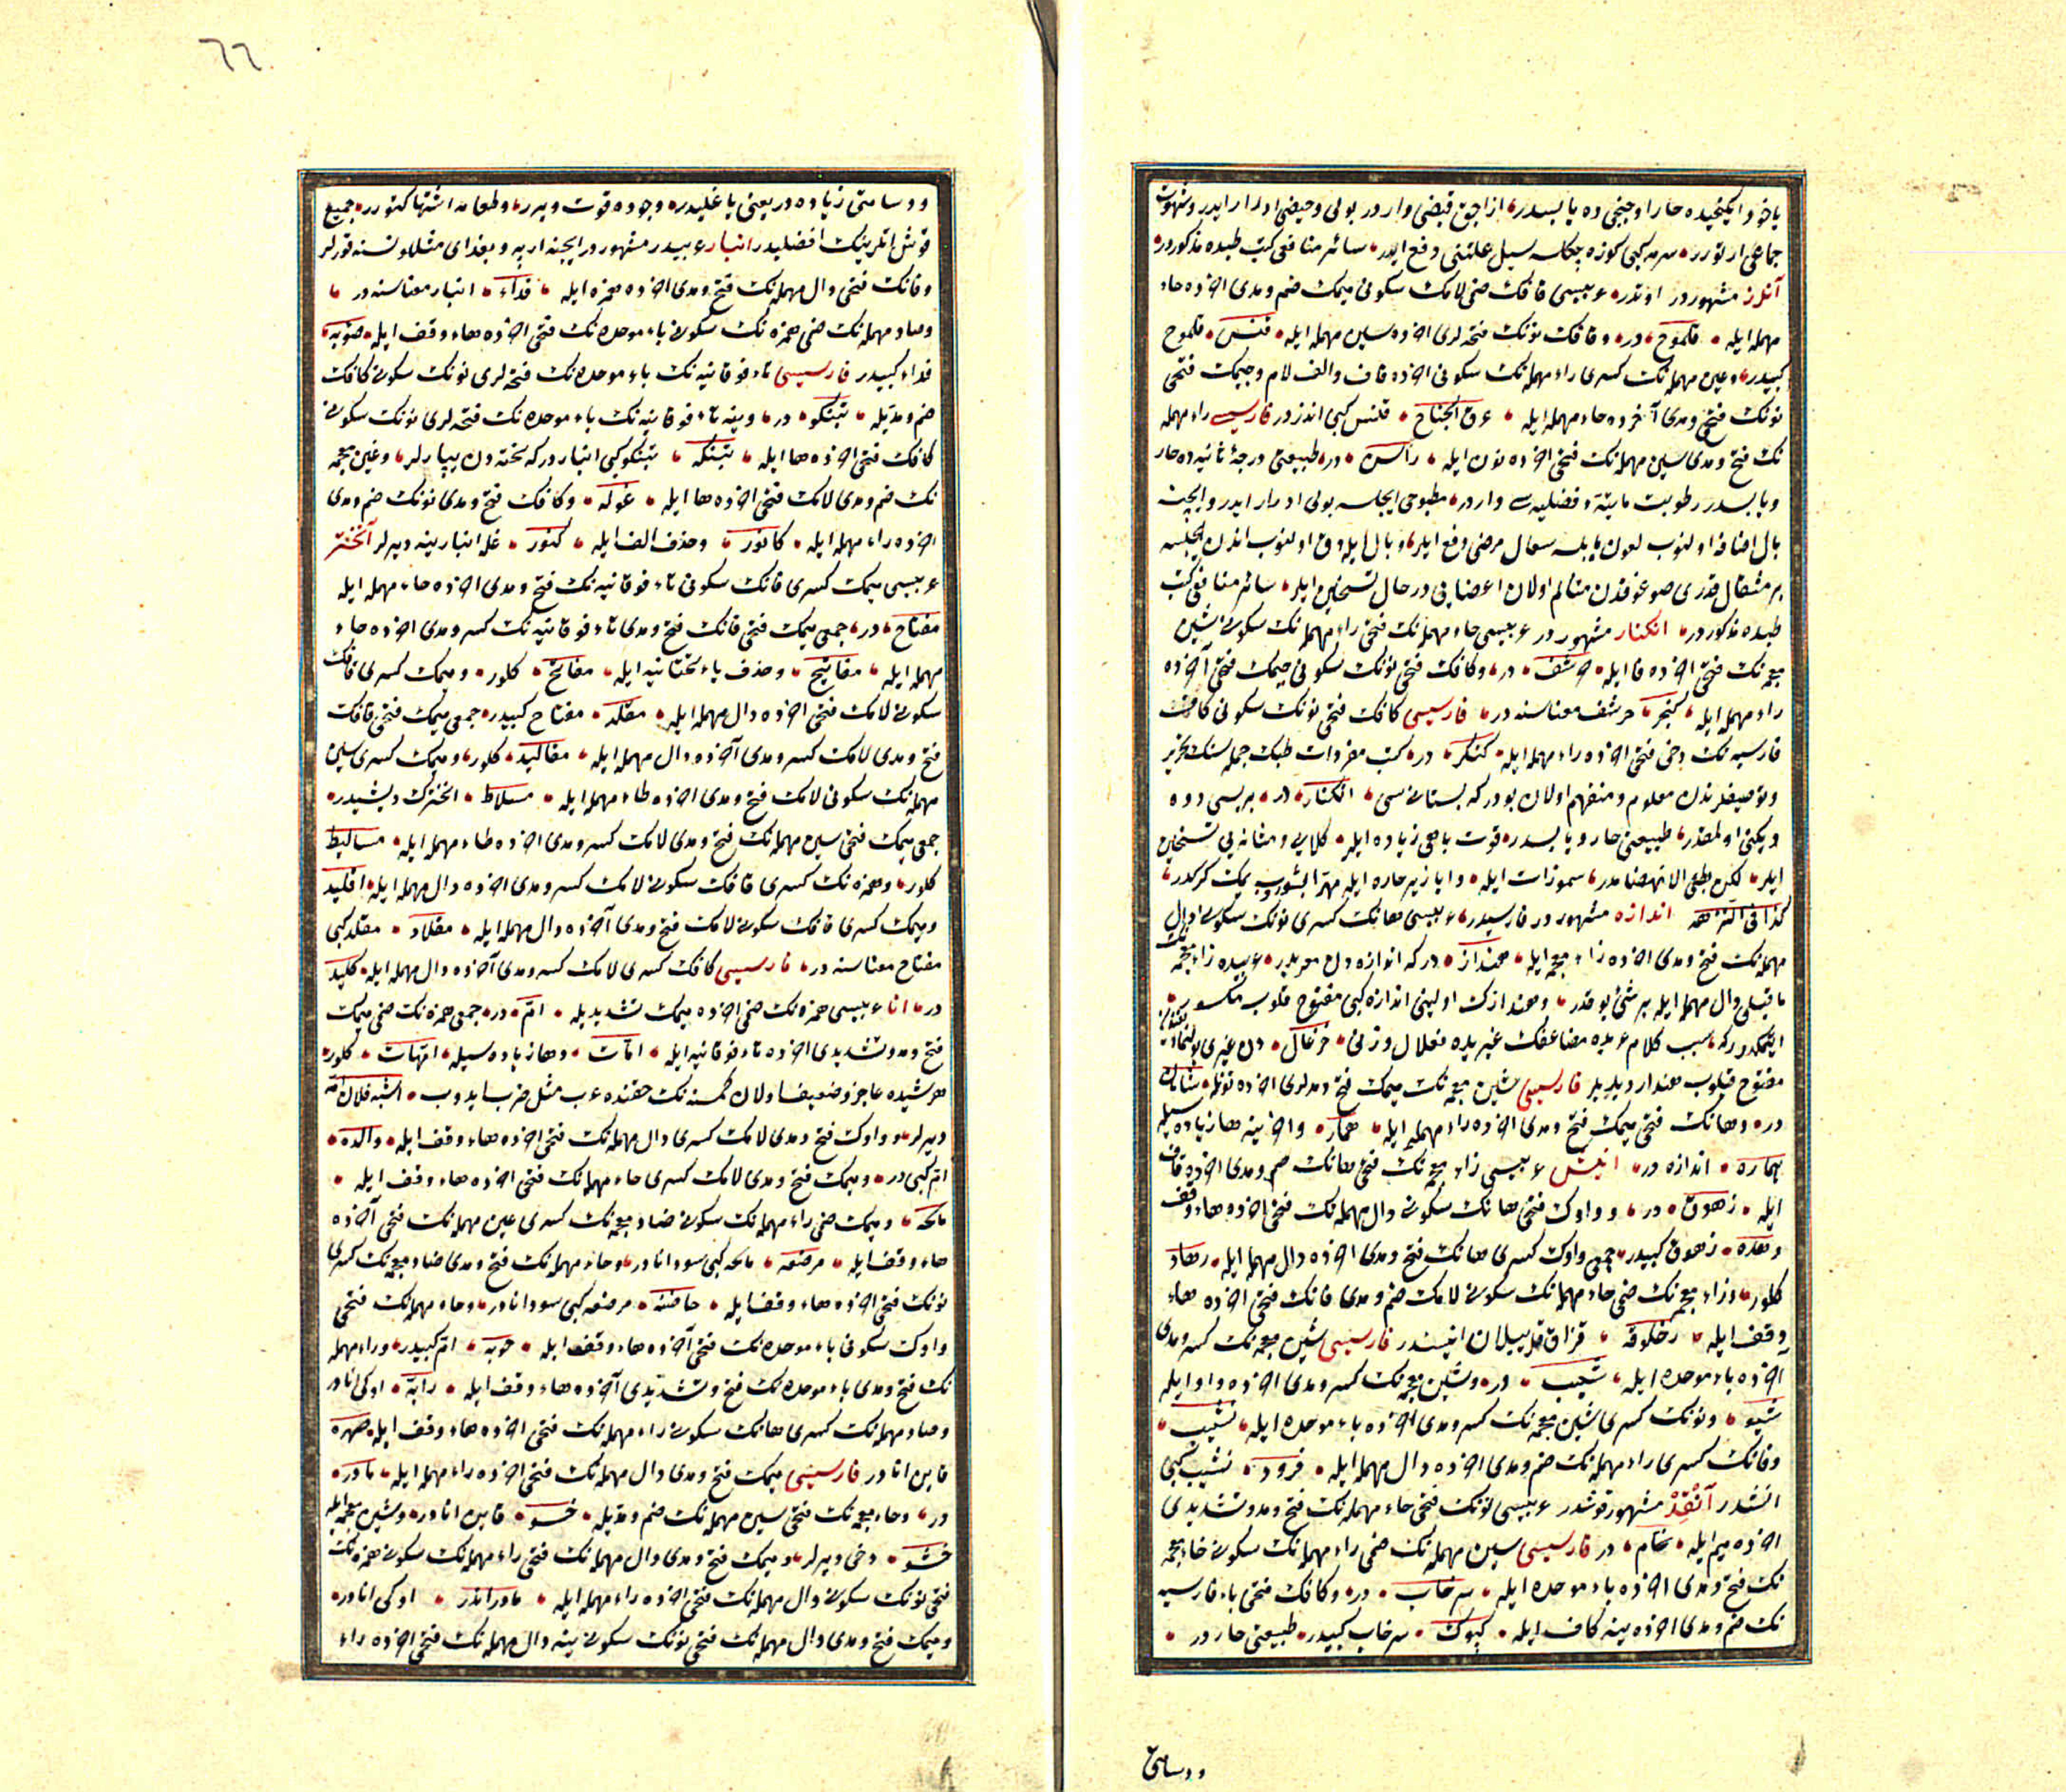 یاخود ایکنجیده حار اوچنجی ده یابسدر ازاجق قبضی وار در بولی وحیضی ادرار ایدر وشهوت
جماعی ارتورر سرمه کبی کوزه چکلسه سیل علتنی دفع ایدر سائر منافعی کتب طبده مذکوردر
آنلز مشهور در اوتدر عربیسی قافک ضمی لامک سکونی میمک ضم ومدی اخرده حاء
مهمله ایله قلموح در وقافک نونک فتحه لری اخرده سین مهمله ایله قنس قلموح
کبیدر وعین مهمله نک کسری راء مهمله نک سکونی اخرده قاف والف لام وجیمک فتحی
نونک فتح ومدی آخرده حاء مهمله ایله عرق الجناح قنس کبی اندز در فارسیسی راء مهمله
نک فتح ومدی سین مهمله نک فتحی اخرده نون ایله راسن در طبیعتی درجۀ ثانیه ده حار
ویابسدر رطوبت مائیۀ فضلیه سی وار در مطبوخی ایچلسه بولی ادرار ایدر وایچنه
بال اضافه اولنوب لعوق یاپلسه سعال مرضی دفع ایدر وبال ایله دق اولنوب اندن ایچلسه
بر مثقال قدری صوغوقدن متالم اولان اعضایی در حال تسخین ایلر سائر منافعی کتب
طبده مذکوردر انکنار مشهور در عربیسی حاء مهمله نک فتحی راء مهمله نک سکونی شین
معجمه نک فتحی اخرده فا ایله حرشف در وکافک فتحی نونک سکونی جیمک فتحی آخرده
راء مهمله ایله کنجر حرشف معناسنه در فارسیسی کافک فتحی نونک سکونی کاف
فارسیه نک دخی فتحی اخرده راء مهمله ایله کنکر در کتب مفردات طبک جمله سنک تحریر
وتوصیفلرندن معلوم ومنفهم اولان بودر که بستانی سی انکنار در بریسی دوه
دیکنی اولمقدر طبیعتی حار ویابسدر قوت باهی زیاده ایلر کلایی ومثانه یی تسخین
ایلر لکن بطی الانهضامدر سموزات ایله وابازیر حاره ایله مهرا بشوروب یمک کرکدر
کذا فی النزهه اندازه مشهور در فارسیدر عربیسی هانک کسری نونک سکونی دال
مهمله نک فتح ومدی اخرده زاء معجمه ایله هنداز در که اندازه دن معربدر عربیده زاء معجمه
ما قبلی دال مهمله ایله بر شئ یوقدر
مفتوح قیلوب هنداز دیدیلر فارسیسی شین معجمه نک میمک فتح ومدلری اخرده نون ایله شامان
در وهانک فتحی میمک فتح ومدی اخرده راء مهمله ایله همار واخرینه ها زیاده سیله
هماره اندازه در انیش عربیسی زاء معجمه نک فتحی هانک ضم ومدی اخرده قاف
ایله زهوق در وواوک فتحی هانک سکونی دال مهمله نک فتحی اخرده هاء وقف
وهده زهوق کبیدر جمعی واوک کسری هانک فتح ومدی اخرده دال مهمله ایله وهاد
کلور وزاء معجمه نک ضمی حاء مهمله نک سکونی لامک ضم ومدی قافک فتحی اخرده هاء
وقف ایله زحلوقه قزاق قیلان انیشدر فارسیسی شین معجمه نک کسر ومدی
اخرده باء موحده ایله شیب در وشین معجمه نک کسر ومدی اخرده واو ایله
شیو ونونک کسری شین معجمه نک کسر ومدی اخرده باء موحده ایله نشیب
وفانک کسری راء مهمله نک ضم ومدی اخرده دال مهمله ایله فرود نشیب کبی
انشدر آنقد مشهور قوشدر عربیسی نونک فتحی حاء مهمله نک فتح ومد وتشدیدی
اخرده میم ایله نحام در فارسیسی سین مهمله نک ضمی راء مهمله نک سکونی خاء معجمه
نک فتح ومدی اخرده باء موحده ایله سرخاب در وکافک فتحی باء فارسیه
نک ضم ومدی اخرده ینه کاف ایله کپوک سرخاب کبیدر طبیعتی حار در
ودسامتی
٦٦
ودسامتی زیاده در یعنی یاغلیدر وجوده قوت ویرر وطعامه اشتها کتورر جمیع
قوش اتلرینک افضلیدر انبار عربیدر مشهور در ایچنه ارپه وبغدای مثللو نسنه قورلر
وفانک فتحی دال مهمله نک فتح ومدی اخرده همزه ایله فداء انبار معناسنه در
وصاد مهمله نک ضمی همزه نک سکونی باء موحده نک فتحی اخرده هاء وقف ایله صؤبه
فداء کبیدر فارسیسی تاء فوقانیه نک باء موحده نک فتحه لری نونک سکونی کافک
ضم ومدیله تبنکو در وینه تاء فوقانیه نک باء موحده نک فتحه لری نونک سکونی
کافک فتحی اخرده ها ایله تبنکه تبنکو کبی انبار در که تخته دن یپارلر وغین معجمه
نک ضم ومدی لامک فتحی اخرده ها ایله غوله وکافک فتح ومدی نونک ضم ومدی
اخرده راء مهمله ایله کانور وحذف الف ایله کنور غله انبارینه دیرلر آنختر
عربیسی میمک کسری فانک سکونی تاء فوقانیه نک فتح ومدی اخرده حاء مهمله ایله
مفتاح در جمعی میمک فتحی فانک فتح ومدی تاء فوقانیه نک کسر ومدی اخرده حاء
مهمله ایله مفاتیح وحذف یاء تحتانیه ایله مفاتح کلور ومیمک کسری قافک
سکونی لامک فتحی اخرده دال مهمله ایله مقلد مفتاح کبیدر جمعی میمک فتحی قافک
فتح ومدی لامک کسر ومدی آخرده دال مهمله ایله مقالید کلور ومیمک کسری سین
مهمله نک سکونی لامک فتح ومدی اخرده طاء مهمله ایله مسلاط انختارک دیشیدر
جمعی میمک فتحی سین مهمله نک فتح ومدی لامک کسر ومدی اخرده طاء مهمله ایله مسالیط
کلور وهمزه نک کسری قافک سکونی لامک کسر ومدی اخرده دال مهمله ایله اقلید
ومیمک کسری قافک سکونی لامک فتح ومدی آخرده دال مهمله ایله مقلاد مقلد کبی
مفتاح معناسنه در فارسیسی کافک کسری لامک کسر ومدی آخرده دال مهمله ایله کلید
در انا عربیسی همزه نک ضمی اخرده میمک تشدیدیله ام در جمعی همزه نک ضمی میمک
فتح ومد وتشدیدی اخرده تاء فوقانیه ایله امات وها زیاده سیله امهات کلور
هر شیده عاجز وضعیف اولان کمسنه نک حقنده عرب مثل ضرب ایدوب اشبه فلان امه
دیرلر وواوک فتح ومدی لامک کسری دال مهمله نک فتحی اخرده هاء وقف ایله والده
ام کبی در ومیمک فتح ومدی لامک کسری حاء مهمله نک فتحی اخرده هاء وقف ایله
مالحه ومیمک ضمی راء مهمله نک سکونی ضاد معجمه نک کسری عین مهمله نک فتحی آخرده
هاء وقف ایله مرضعه مالحه کبی سود انادر وحاء مهمله نک فتح ومدی ضاد معجمه نک کسری
نونک فتحی اخرده هاء وقف ایله حاضنه مرضعه کبی سود انادر وحاء مهمله نک فتحی
واوک سکونی باء موحده نک فتحی آخرده هاء وقف ایله حوبه ام کبیدر وراء مهمله
نک فتح ومدی باء موحده نک فتح وتشدیدی آخرده هاء وقف ایله رابه اوکی انادر
وصاد مهمله نک کسری هانک سکونی راء مهمله نک فتحی اخرده هاء وقف ایله صهره
قاین انادر فارسیسی میمک فتح ومدی دال مهمله نک فتحی اخرده راء مهمله ایله مادر
در وخاء معجمه نک فتحی سین مهمله نک ضم ومدیله خسو قاین انادر وشین معجمه ایله
خشو دخی دیرلر ومیمک فتح ومدی دال مهمله نک فتحی راء مهمله نک سکونی همزه نک
فتحی نونک سکونی دال مهمله نک فتحی اخرده راء مهمله ایله مادراندر اوکی انادر
ومیمک فتح ومدی دال مهمله نک فتحی نونک سکونی ینه دال مهمله نک فتحی اخرده راء